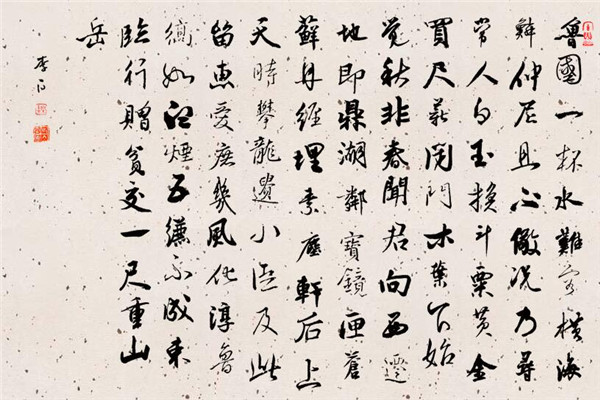 魯國一杯水難容橫海
鱗仲尼且不敬況乃尋
常人白玉換斗粟黃金
買尺薪閉門木葉下始
覺秋非春聞君向西遷
地即鼎湖鄰寶鏡匣蒼
蘚丹經埋素塵軒后上
天時攀龍遺小臣及此
留惠愛庶幾風化淳魯
縞如白煙五縑不成束
臨行贈貧交一尺重山
岳
李白